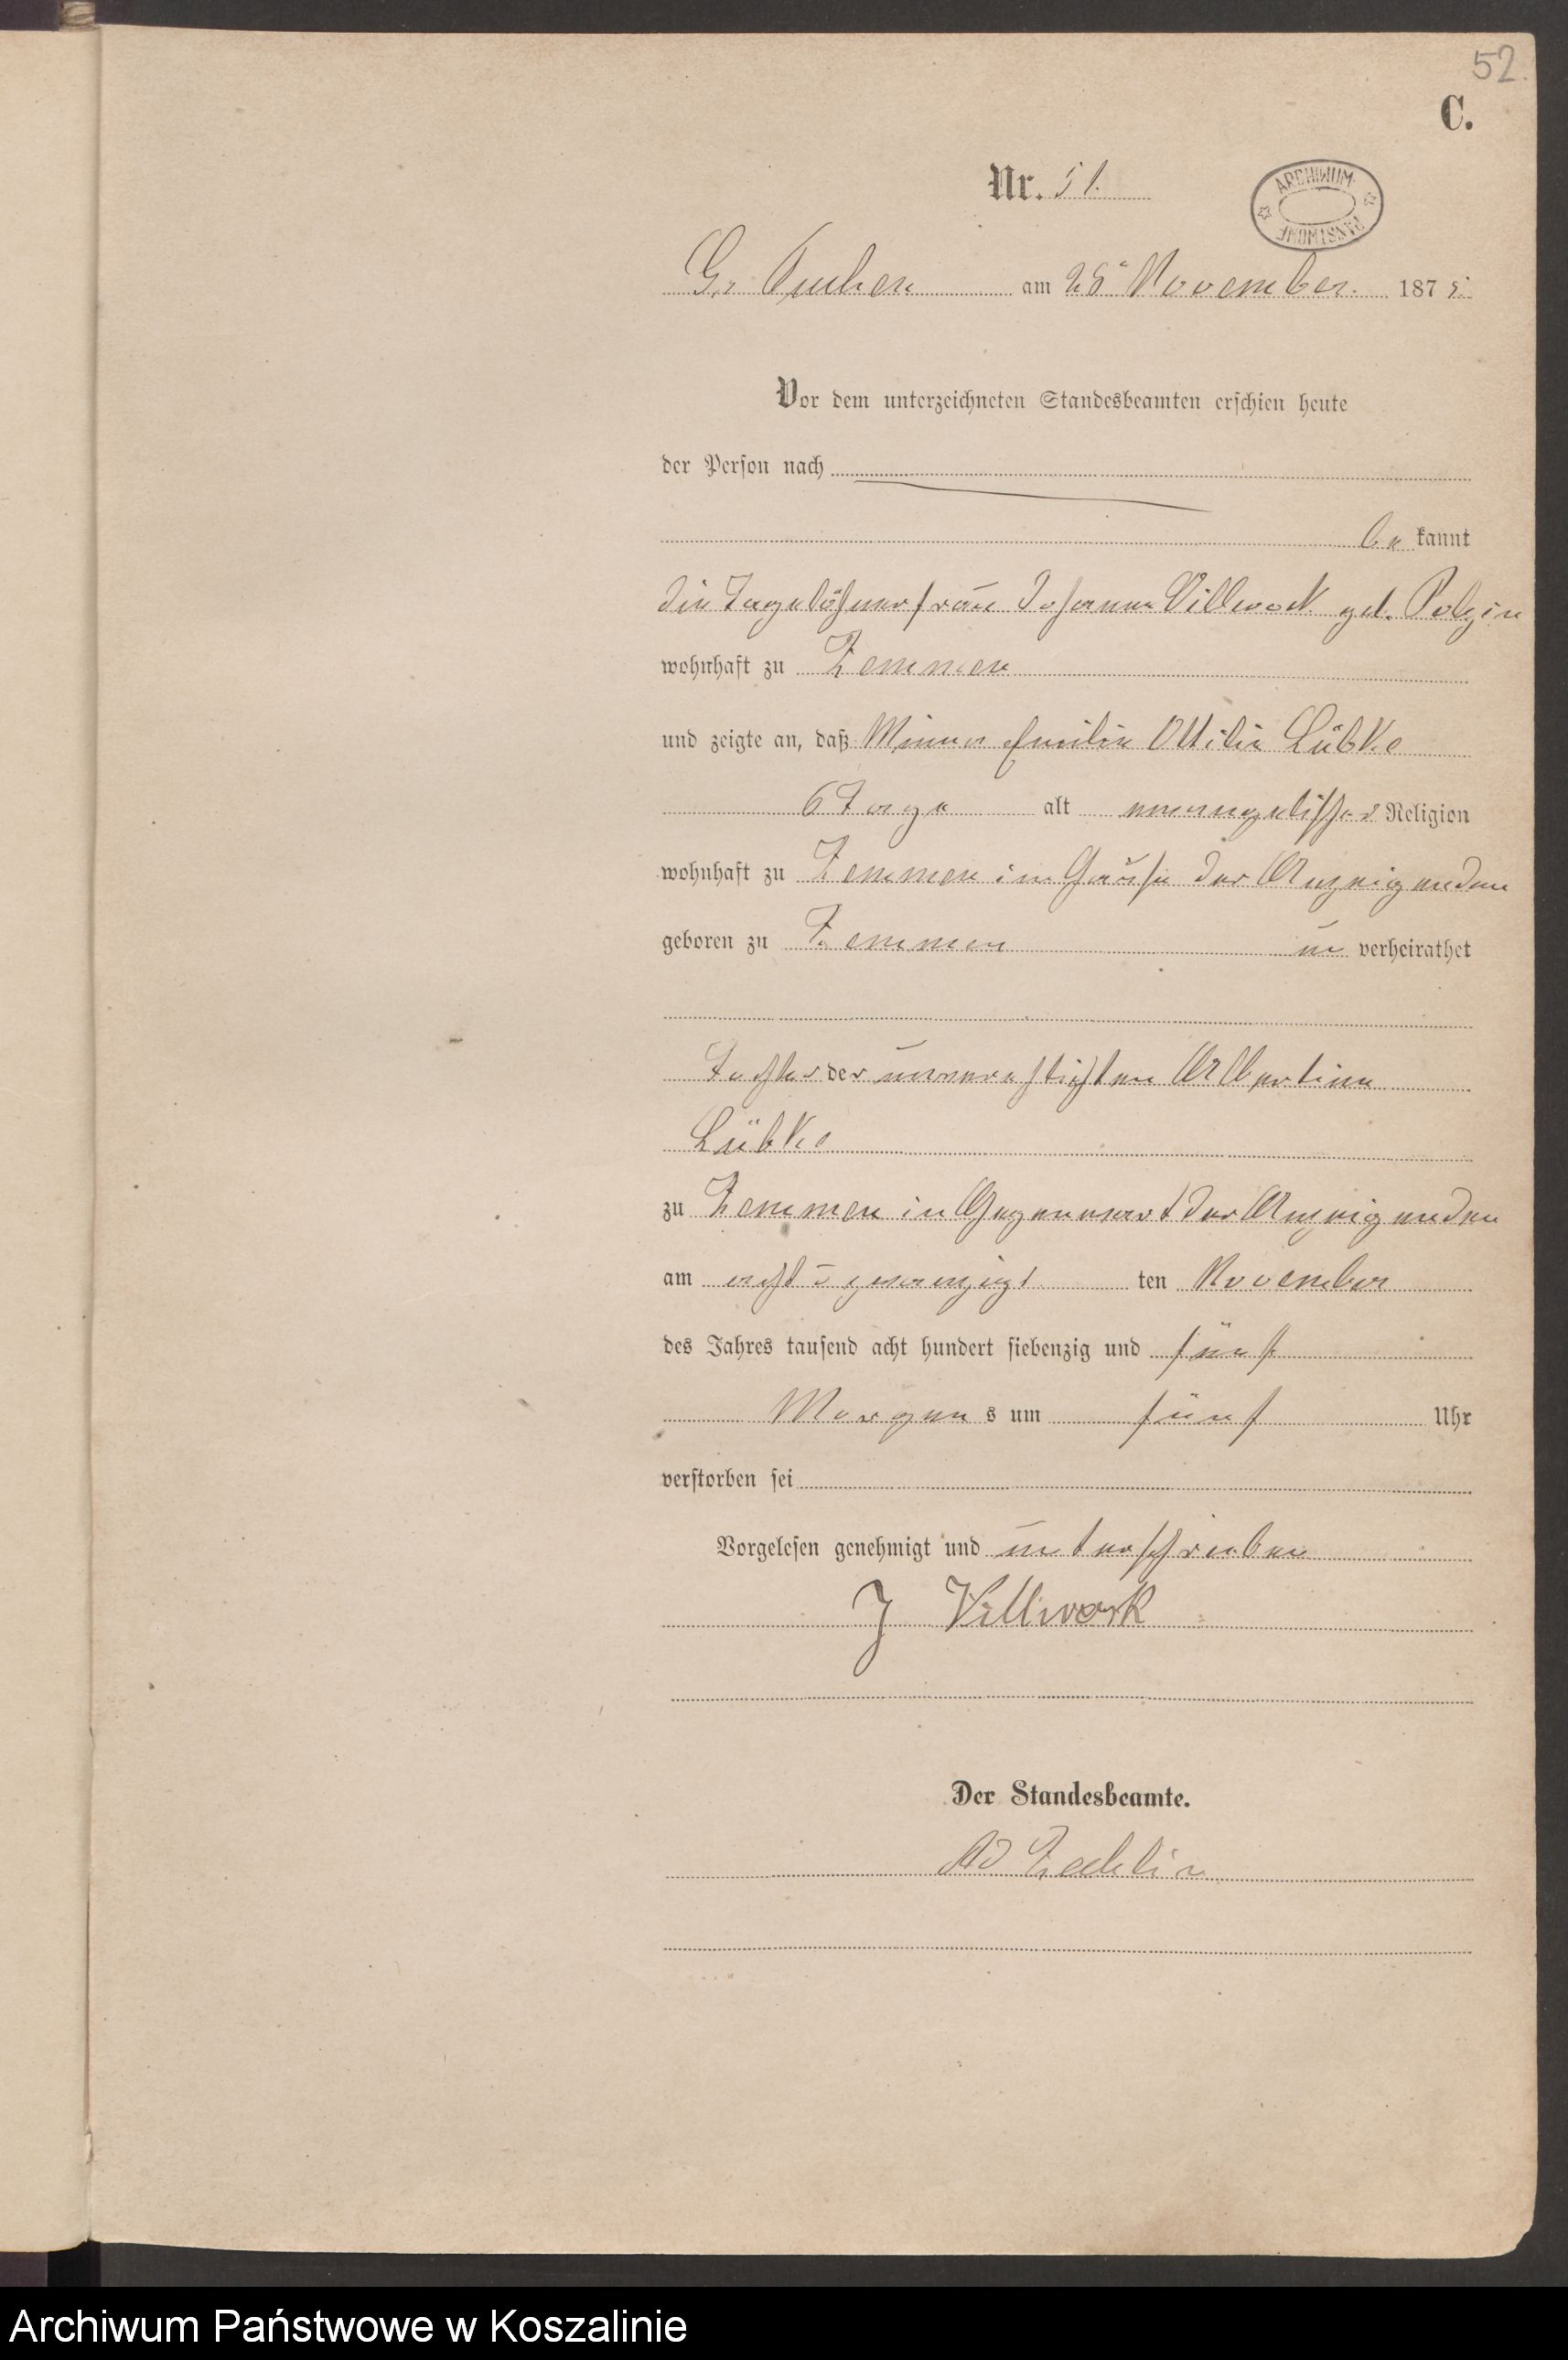 52.
C.
Nr. 51.
ARCHIWUM PAŃSTWOWE
Gr Tuchen am 28ᵗ November. 1875.
Vor dem unterzeichneten Standesbeamten erschien heute
der Person nach
be kannt
die Tagelöhnerfrau Johanne Villwock geb. Polzin
wohnhaft zu Zemmen
und zeigte an, daß Minna Emilie Ottilie Lübke
6 Tage alt evangelischer Religion
wohnhaft zu Zemmen im Hause der Anzeigenden
geboren zu Zemmen un verheirathet
Tochter der unverehelichten Albertine
Lübke
zu Zemmen in Gegenwart der Anzeigenden
am acht u zwanzigst ten November
des Jahres tausend acht hundert siebenzig und fünf
Morgens um fünf Uhr
verstorben sei
Vorgelesen genehmigt und unterschrieben
J Villwock
Der Standesbeamte.
Archiwum Państwowe w Koszalinie